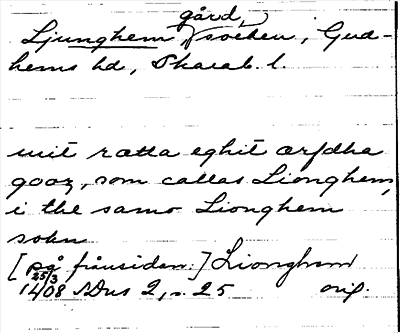 Ljunghem gård, socken, Gud-
hems hd, Skarab. l.
mit rætta eghit ærfdha
gooz, som callas Lionghem,
i the samo Lionghem
sokn
[på frånsidan:] Lionghem
1408 25/3 SDns 2, s. 25 orig.